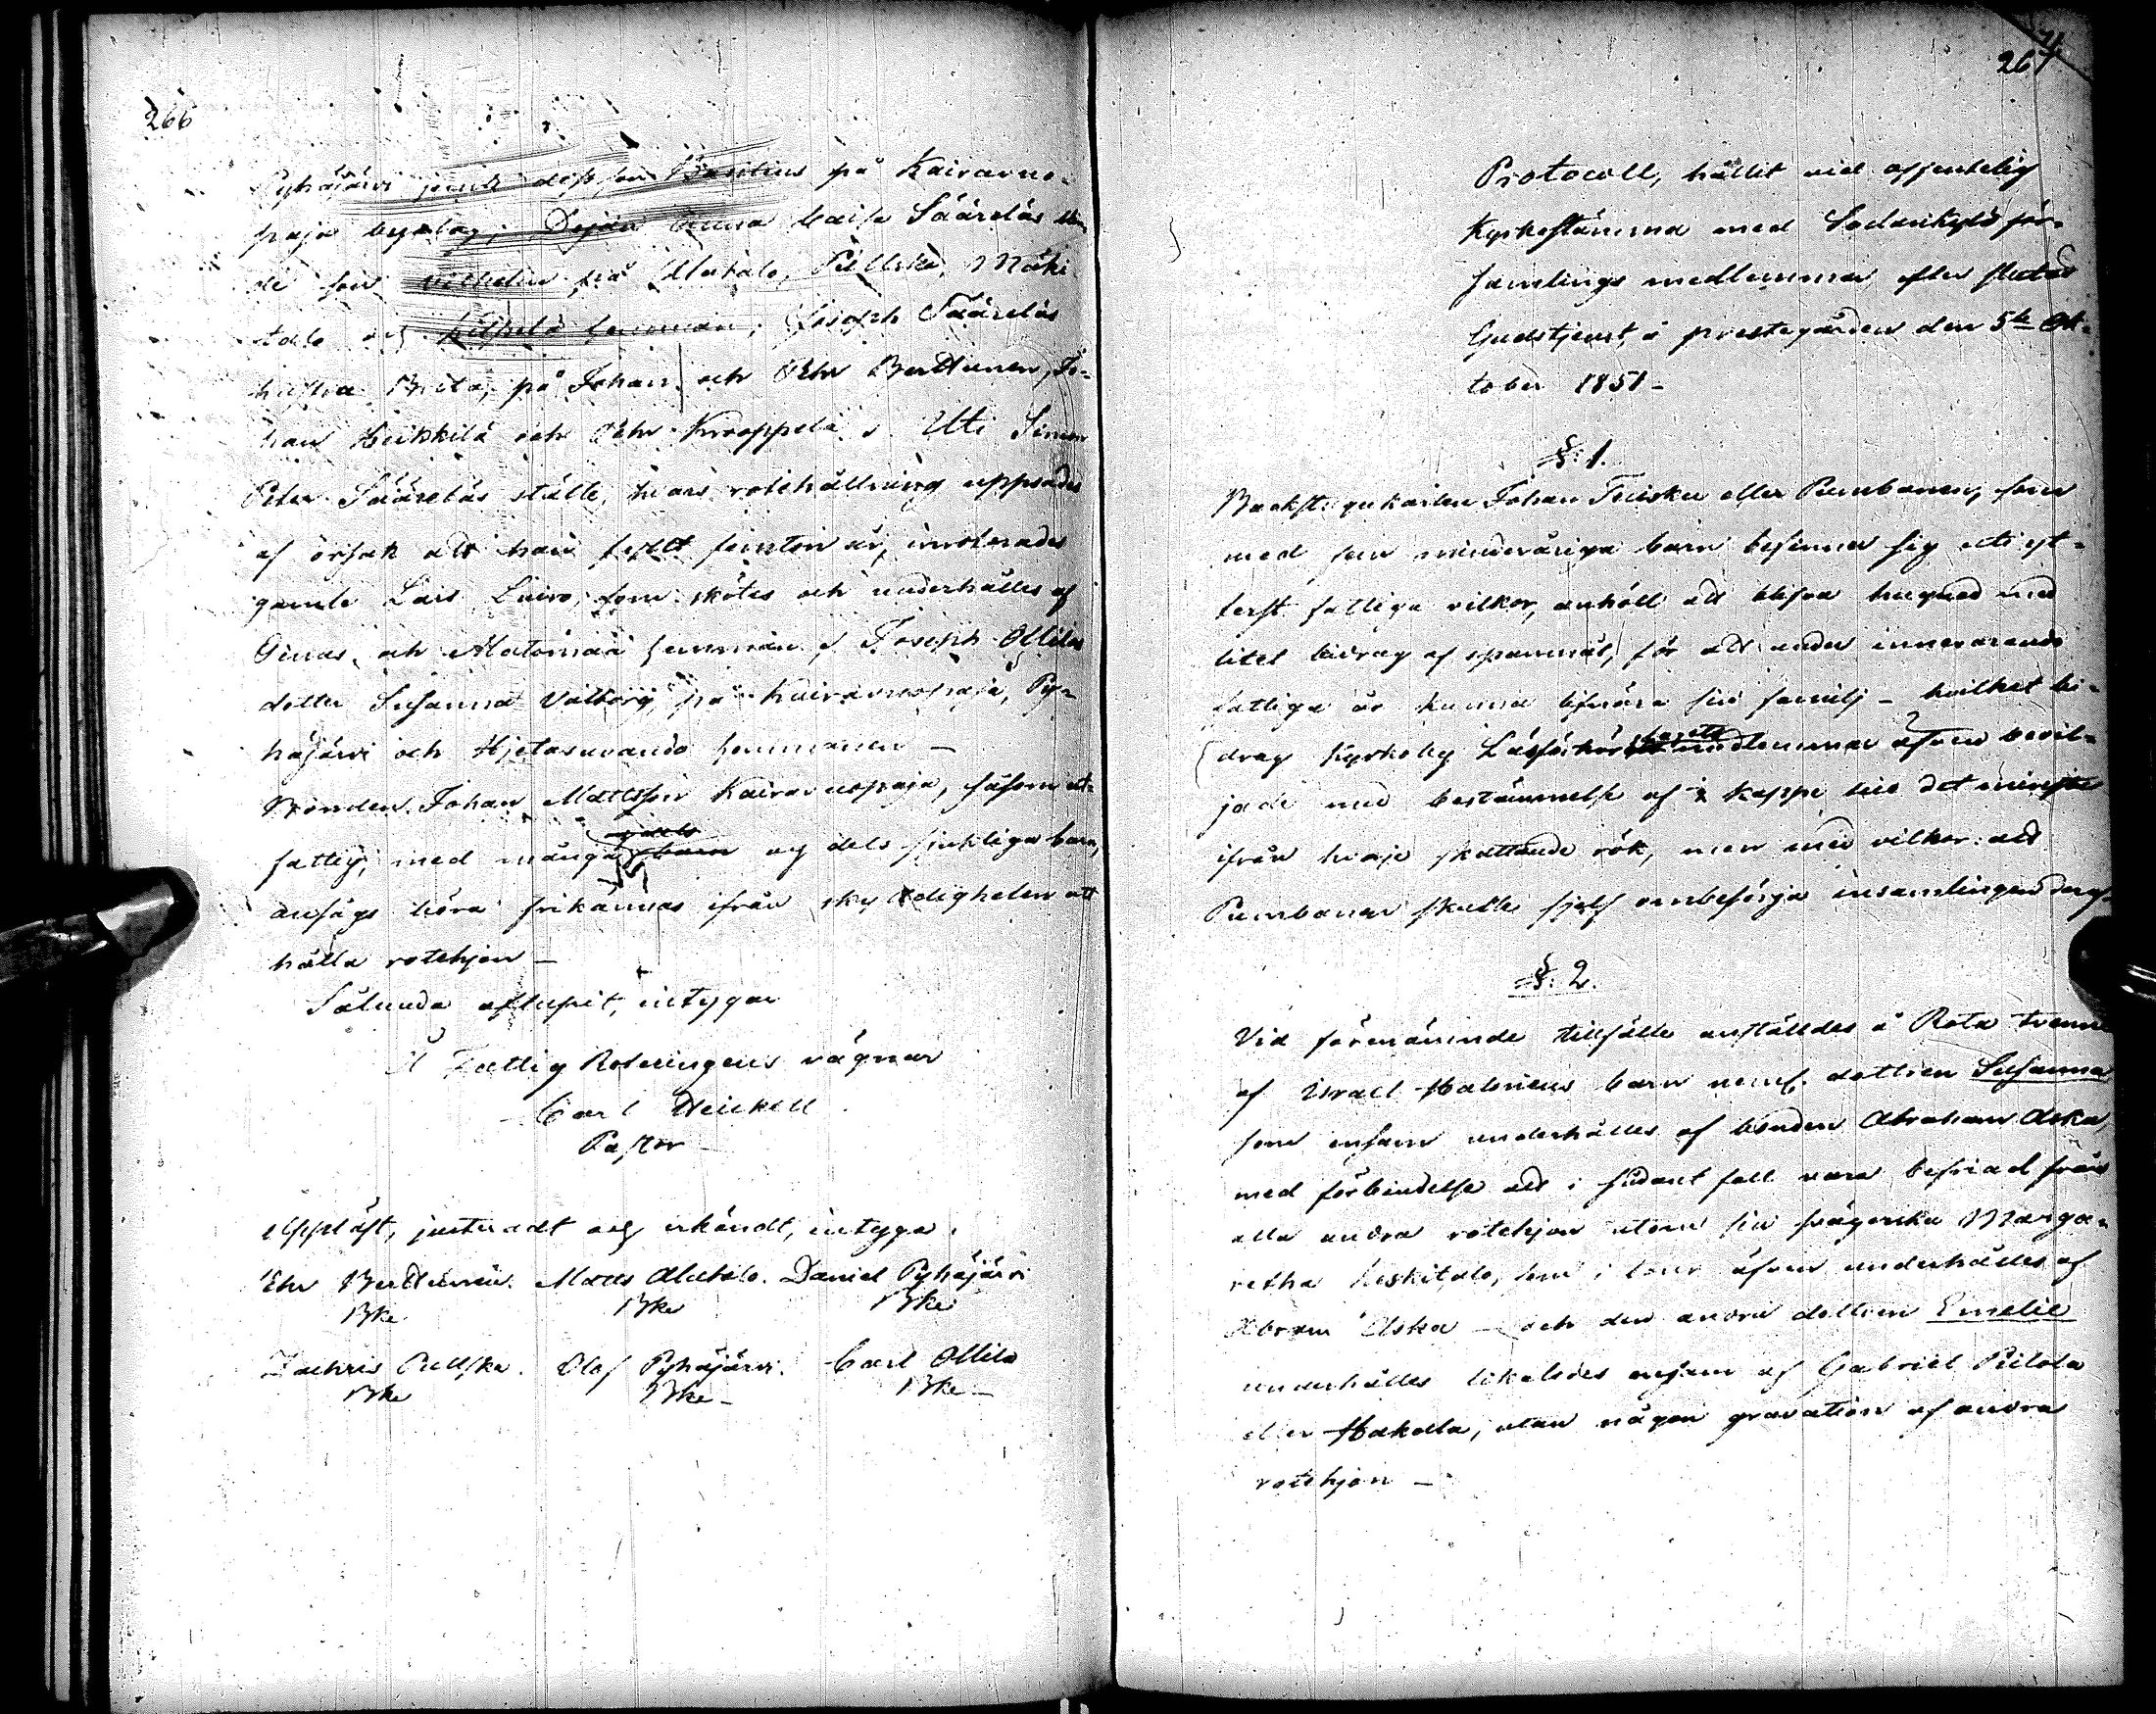 266
Pyhäjärvi jemte dess son Basilius på Kairavuo-
paja byalag; Enkan Anna Caisa Sääreläs
de son Vilhelm på Alatalo, Pullska, Mäki
talo och hemman; Joseph Sääreläs
hustru Brita, på Johan och Pehr Berttunen, Jo-
han Heikkilä och Pehr Knoppela. Uti Simon
Peter Sääreläs ställe, hvars rotehållning uppsades
af orsak att han fyllt femton år, inroterades
gamle Lars Luiro, som skötes och underhålles af
och Matomaa hemman. Joseph Ollilas
dotter Susanna Valborg på Kairavuopaja, Py-
häjärvi och Hjetasuvando hemmanen —
Bonden Johan Mattsson Kairavuopaja, såsom ut-
fattig, med många barn och dels sjukliga barn,
ansågs böra frikännas ifrån skyldigheten att
hålla rotehjon —
Sålunda aflupit, intygar
Å Fattig Roteringens vägnar
Carl Heickell
Pastor
Uppläst, justeradt och erkändt, intyga.
Pehr Berttunen. Matts Alatalo. Daniel Pyhäjärvi
Bke Bke Bke
Zachris Pullska. Olof Pyhäjärvi. Carl Ollila
Bke Bke — Bke —
267
Protocoll, hållit vid offentelig
Kyrkostämma med Sodankylä för-
samlings medlemmar efter slutad
Gudstjenst, å prestegården den 5te Ok-
tober 1851 —
§. 1.
Backstugukarlen Johan Teisku eller Pumbanen, som
med sin minderåriga barn befinner sig uti yt-
terst fattiga vilkor, anhöll att blifva hugnad med
litet bidrag af spannmål, för att under innevarande
fattiga år kunna lifnära sin familj — hvilket bi-
drag Kyrkoby Läsförhörs medlemmar äfven bevil-
jade med bestämmelse af kappe till det minsta
ifrån hvarje skattande rök, men med vilkor att
Pumbanen skulle sjelf ombesörja insamlingen deraf.
§. 2.
Vid förenämnde tillfälle anställdes å Rota tvenne
af Israel Halonens barn neml. dottren Susanna
som ensam underhålles af bonden Abraham Aska,
med förbindelse att i sådant fall vara befriad från
alla andra rotehjon utom sin svägerska Marga-
retha Keskitalo, som i tour äfven underhålles af
Abram Aska — och den andra dottren Emelie
underhålles likaledes ensam af Gabriel Pietola
eller Hakala, utan någon gravation af andra
rotehjon —